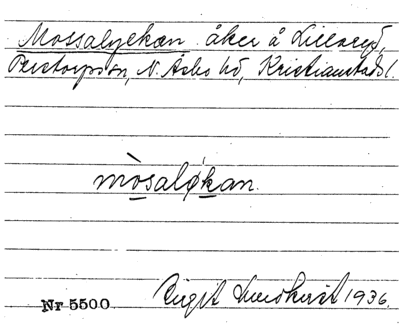 Mossalyckan åker å Lillaryd,
Perstorps sn, N. Åsbo hd, Kristianstads l.
mòsaløkan.
Nr 5500 Birgit Lundkvist 1936.